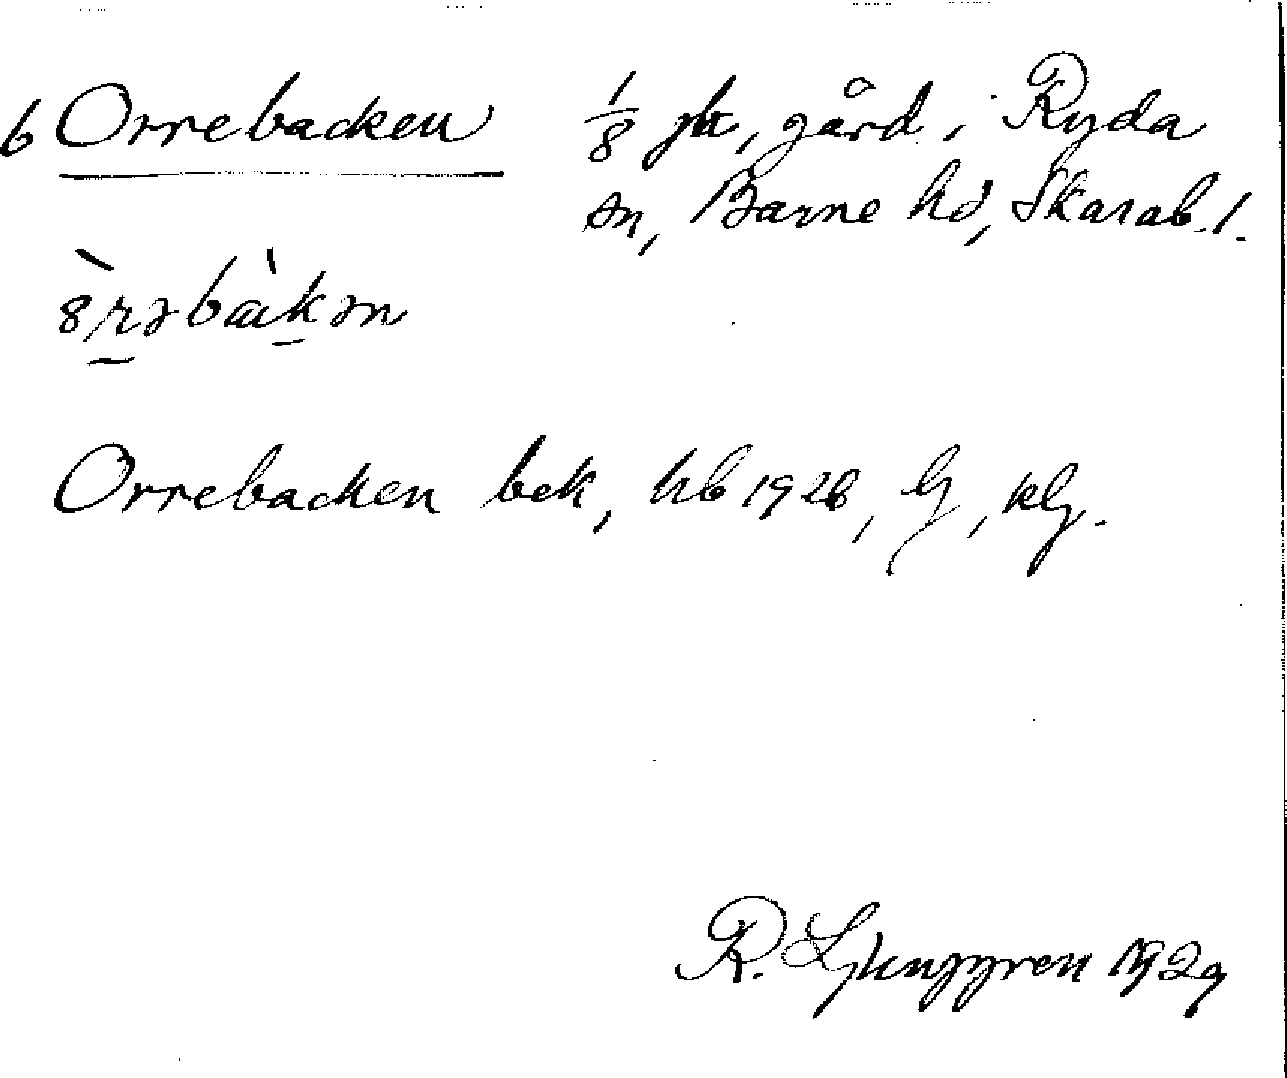 6 Orrebacken 1/8 jb, gård i Ryda
sn, Barne hd, Skarab. l.
Orrebacken bek, hb 1926, lj, klj.
R. Ljunggren 1929